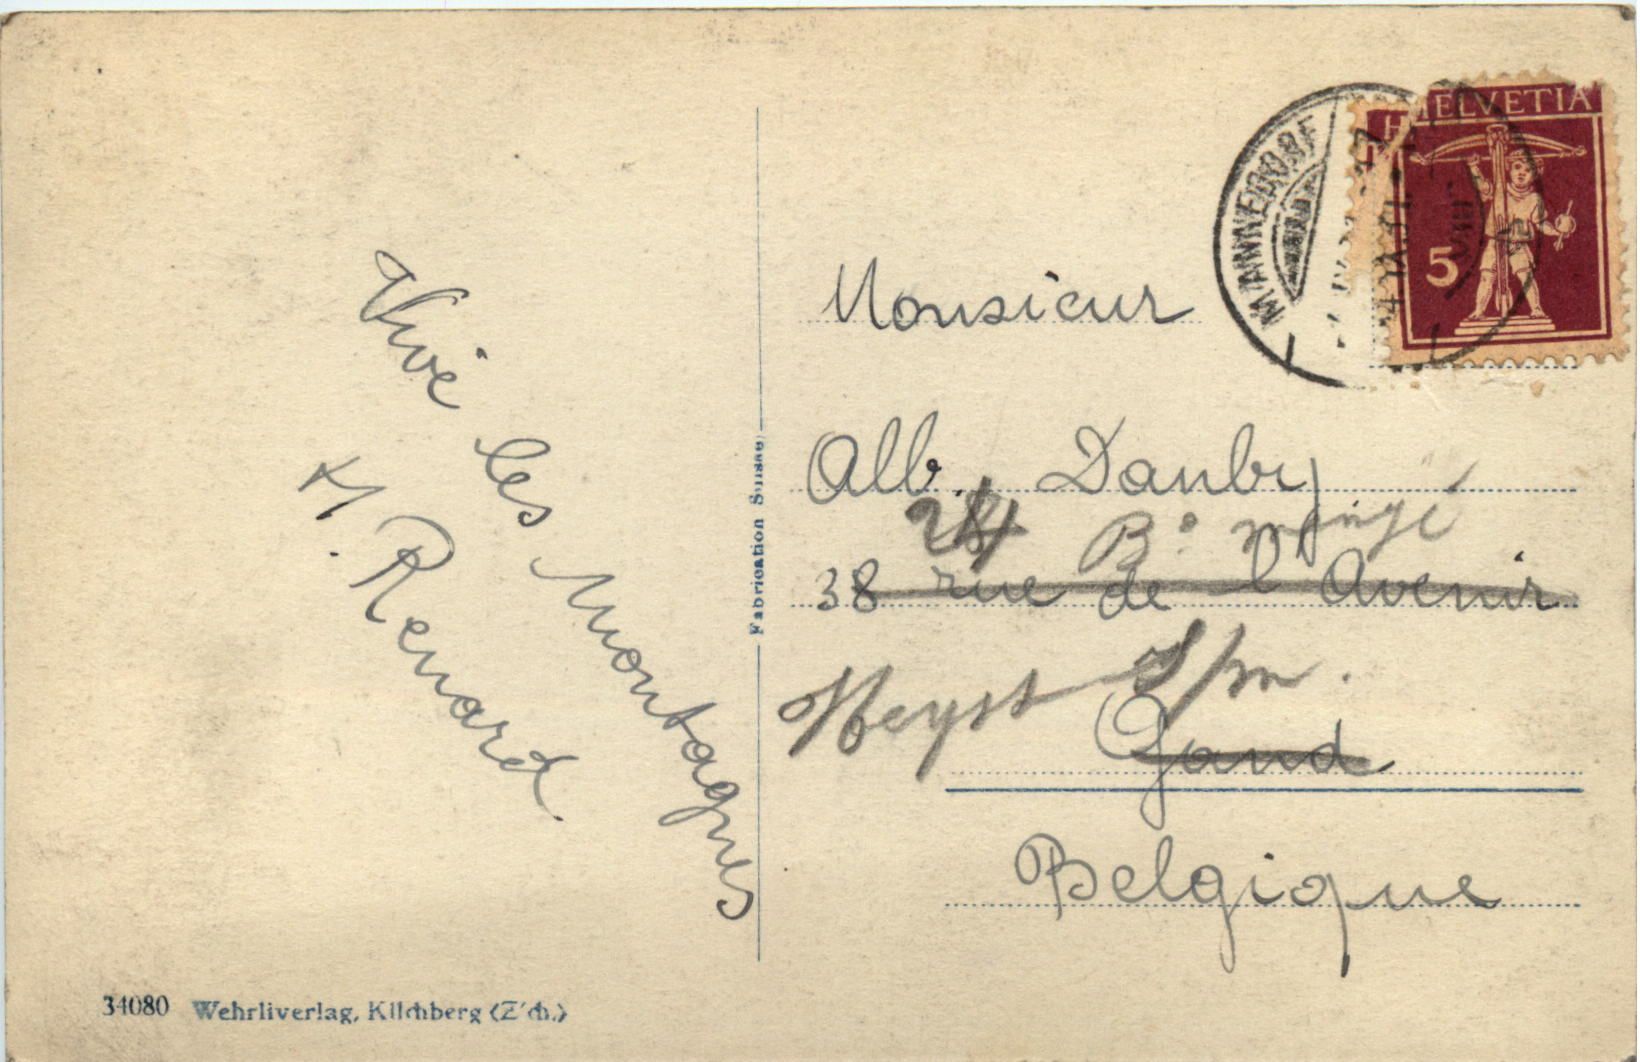 Vive les Montagnes
H. Renard
34080 Wehrliverlag, Kilchberg (Z'ch.)
Fabrication Suisse
MÄNNEDORF
HELVETIA
5
Monsieur
Alb. Danby
38 rue de l'Avenir
Heyst s/m.
Gand
Belgique